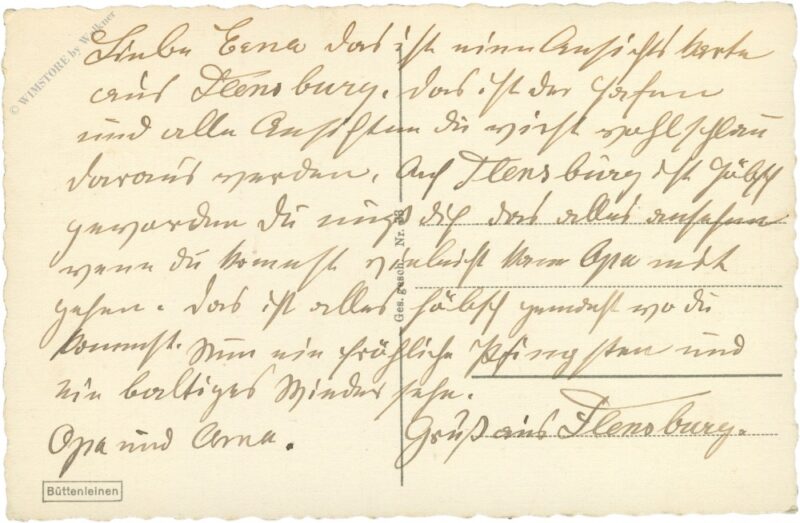 © WIMSTORE by Walkner
Liebe Erna das ist eine Ansichtskarte
aus Flensburg. das ist der Hafen
und alle Ansichten du wirst wohl schlau
daraus werden. Auch Flensburg ist höbsch
geworden du mußt dich das alles ansehen
wenn du kommst vieleicht kann Opa mit
gehen. das ist alles höbsch gemacht wo du
kommst. Nun ein fröhliche Pfingsten und
ein baltiges Wieder sehn.
Opa und Oma.
Gruß aus Flensburg.
Ges. gesch. Nr.
Büttenleinen